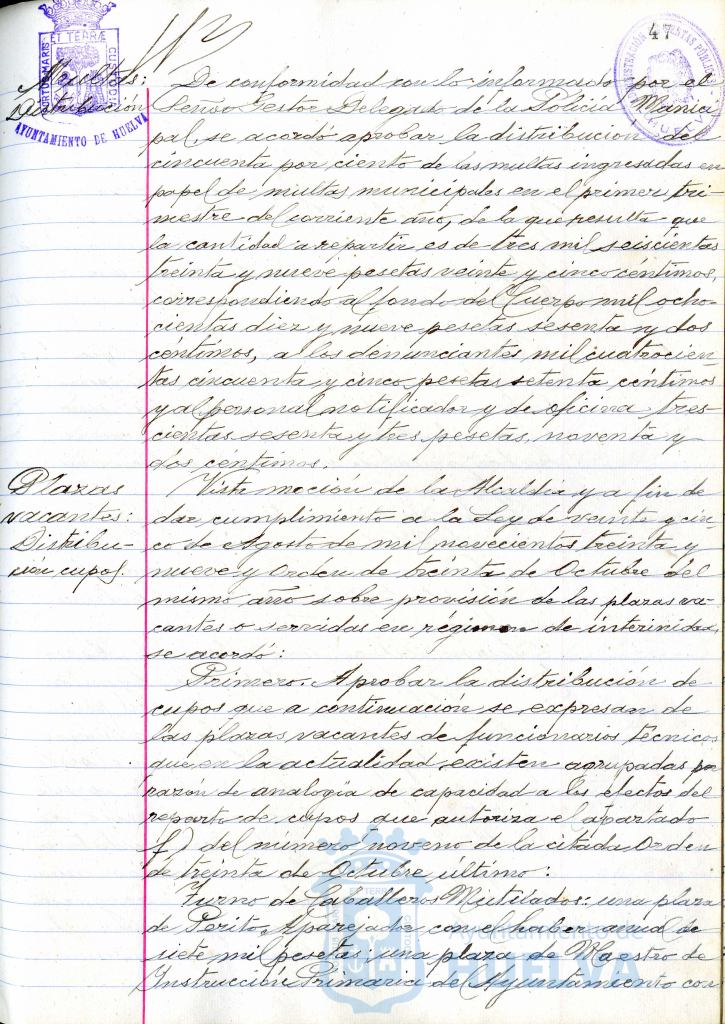 47
PORTUS MARIS ET TERRÆ CUSTODIA
AYUNTAMIENTO DE HUELVA
Multas:
Distribución
De conformidad con lo informado por el
Señor Gestor Delegado de la Policia Munici
pal, se acordó aprobar la distribucion del
cincuenta por ciento de las multas ingresadas en
papel de multas municipales en el primer tri-
mestre del corriente año, de la que resulta que
la cantidad a repartir es de tres mil seiscientas
treinta y nueve pesetas veinte y cinco céntimos,
correspondiendo al fondo del Cuerpo mil ocho-
cientas diez y nueve pesetas sesenta y dos
céntimos, a los denunciantes mil cuatrocien-
tas cincuenta y cinco pesetas setenta céntimos
y al personal notificador y de oficina tres-
cientas sesenta y tres pesetas, noventa y
dos céntimos.
Plazas
vacantes:
Distribu-
ción cupos.
Vista moción de la Alcaldía y a fin de
dar cumplimiento a la Ley de veinte y cin-
co de Agosto de mil novecientos treinta y
nueve y Orden de treinta de Octubre del
mismo año sobre provisión de las plazas va-
cantes o servidas en régimen de interinidad,
se acordó:
Primero. Aprobar la distribución de
cupos que a continuación se expresan de
las plazas vacantes de funcionarios técnicos
que en la actualidad existen agrupadas por
razón de analogía de capacidad a los efectos del
reparto de cupos que autoriza el apartado
f) del número noveno de la citada Orden
de treinta de Octubre último:
Turno de Caballeros Mutilados: una plaza
de Perito Aparejador con el haber anual de
siete mil pesetas; una plaza de Maestro de
Instrucción Primaria de Ayuntamiento con
Ayuntamiento de
HUELVA